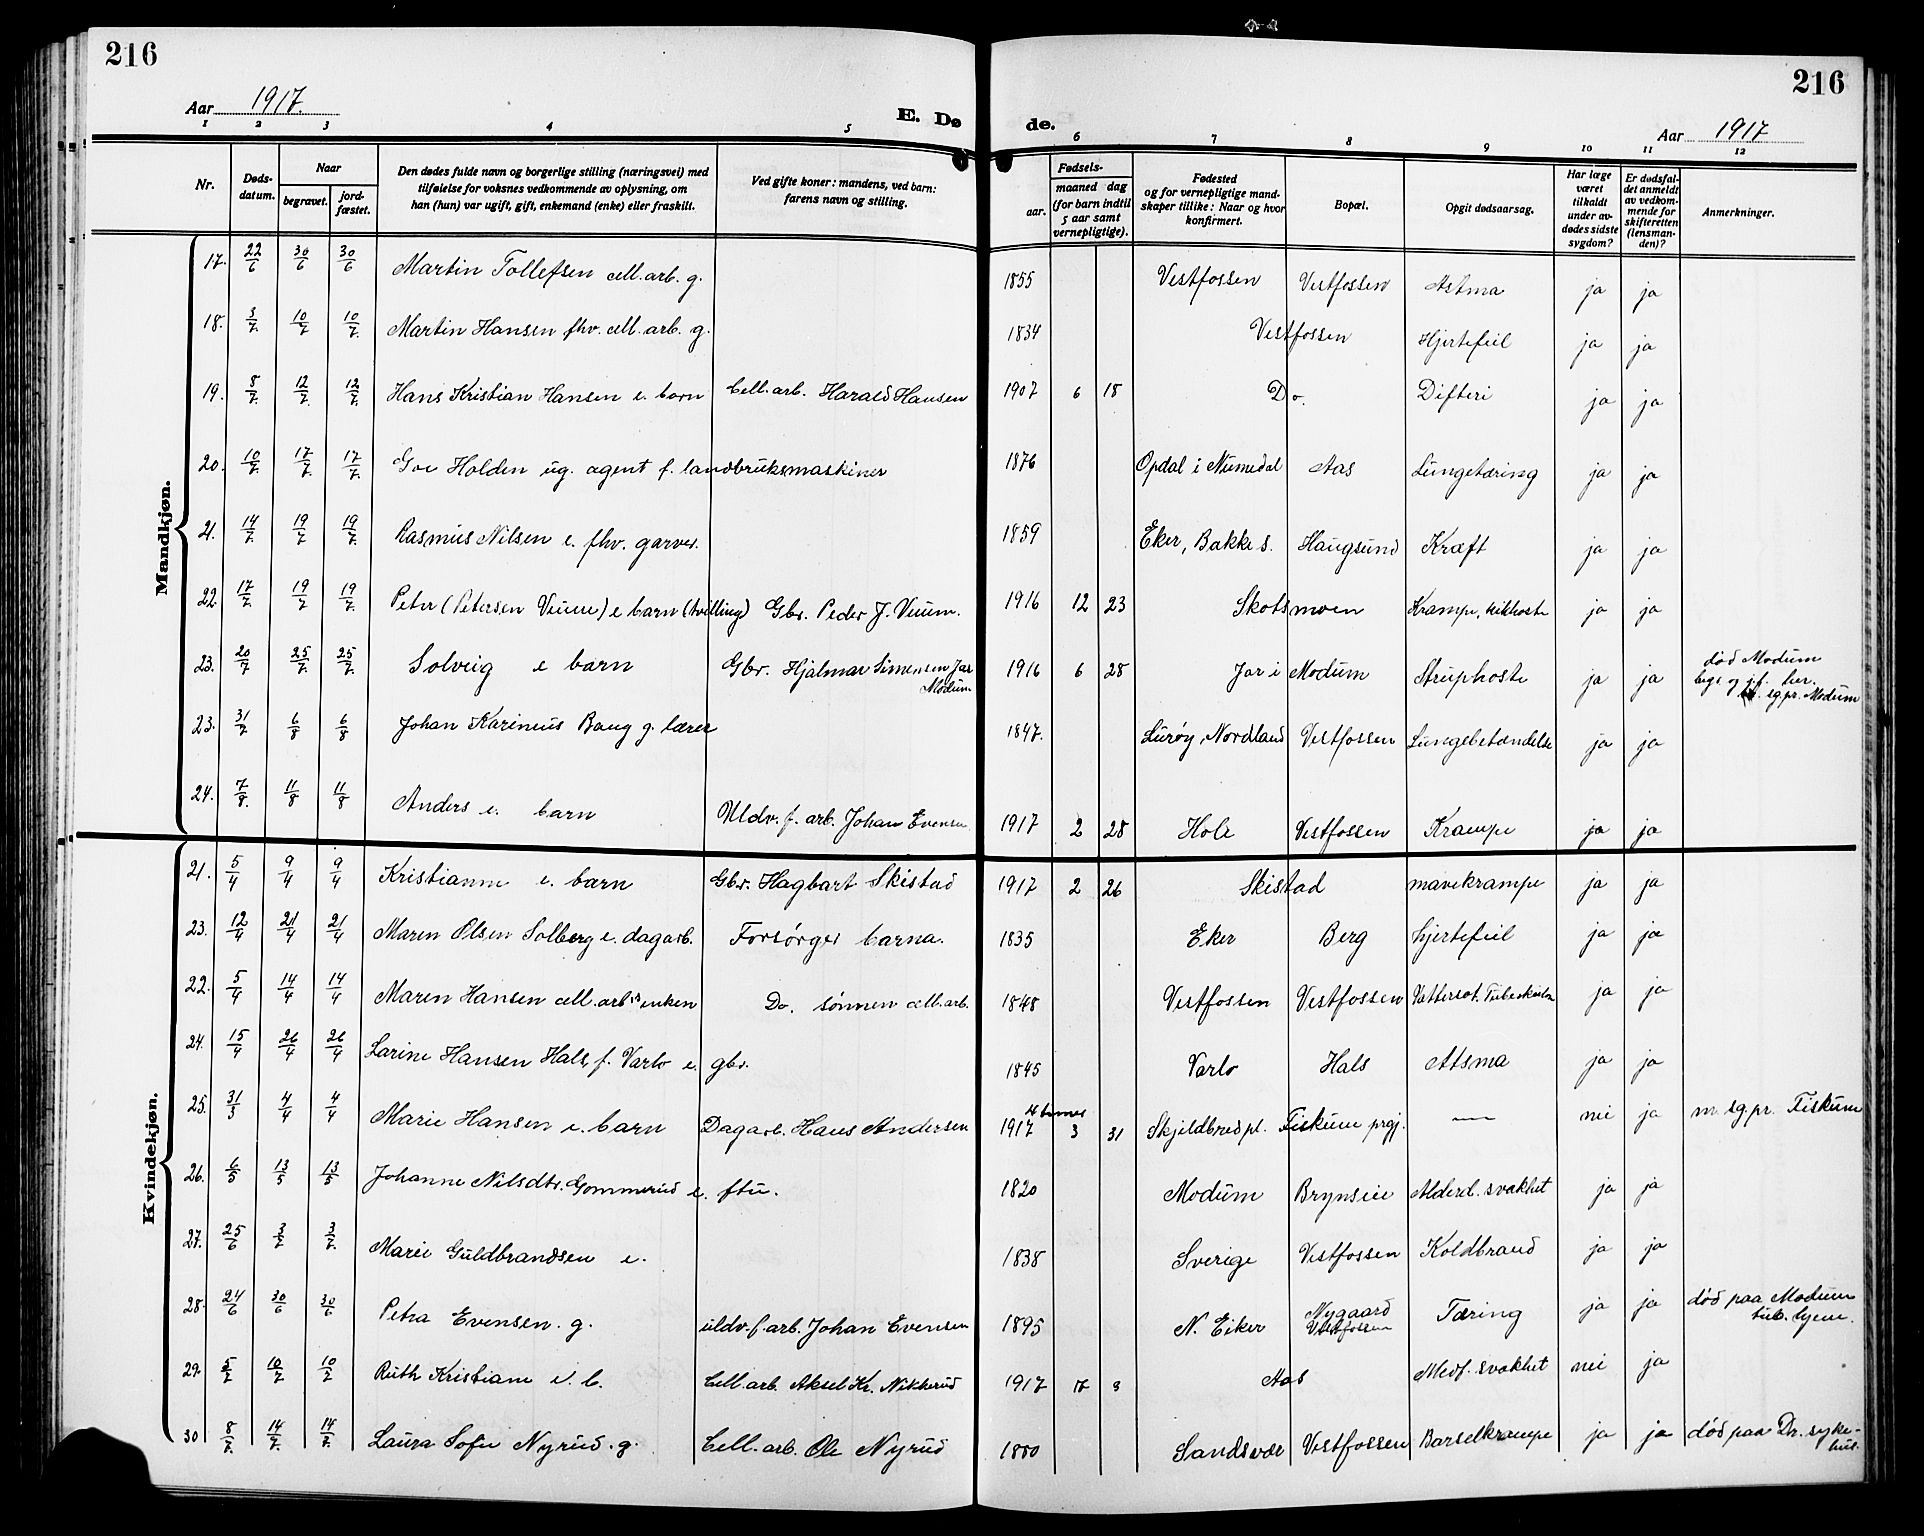 216
216
Aar 1917.
E. Dø
de.
Aar 1917
1 2 3 4 5 6 7 8 9 10 11 12
Nr.
Døds-
datum.
Naar
begravet.
jord-
fæstet.
Den dødes fulde navn og borgerlige stilling (næringsvei) med
tilføielse for voksnes vedkommende av oplysning, om
han (hun) var ugift, gift, enkemand (enke) eller fraskilt.
Ved gifte koner: mandens, ved barn:
farens navn og stilling.
Fødsels-
aar.
maaned dag
(for barn indtil
5 aar samt
vernepligtige).
Fødested
og for vernepligtige mand-
skaper tillike: Naar og hvor
konfirmert.
Bopæl.
Opgit dødsaarsag.
Har læge
været
tilkaldt
under av-
dødes sidste
sygdom?
Er dødsfal-
det anmeldt
av vedkom-
mende for
skifteretten
(lensman-
den)?
Anmerkninger.
Mandkjøn.
17. 22/6 30/6 30/6 Martin Tollefsen cell. arb. g. 1855 Vestfossen Vestfossen Astma ja ja
18. 3/7. 10/7. 10/7. Martin Hansen fhv. cell. arb. g. 1834 Vestfossen Hjertefeil ja ja
19. 8/7. 12/7. 12/7. Hans Kristian Hansen e. barn Cell. arb. Harald Hansen 1907 6 18 Do. Difteri ja ja
20. 10/7. 17/7. 17/7. Goe Holden ug. agent f. landbruksmaskiner 1876 Opdal i Numedal Aas Lungetæring ja ja
21. 14/7. 19/7. 19/7. Rasmus Nilsen e. fhv. garver. 1859 Eker, Bakke s. Haugsund Kræft ja ja
22 17/7. 19/7. 19/7. Peter (Petersen Veium) e barn (tvilling) Gbr. Peder J. Veium. 1916 12 23 Skotsmoen Krampe, kikhoste ja ja
23. 20/7 25/7. 25/7. Solveig e barn Gbr. Hjalmar Simensen Jar
Modum 1916 6 28 Jar i Modum Struphoste ja ja død Modum
begr og jf. her.
sg.pr. Modum
23. 31/7 6/8 6/8 Johan Karinius Baug g. lærer 1847. Lurøy, Nordland Vestfossen Lungebetændelse ja ja
24. 7/8. 11/8 11/8 Anders e. barn Uldv. f. arb. Johan Evensen 1917 2 28 Hole Vestfossen Krampe ja ja
Kvindekjøn.
21. 5/4 9/4 9/4 Kristianne e. barn Gbr. Hagbart Skistad 1917 2 26 Skistad mavekrampe ja ja
23. 12/4 21/4 21/4 Maren Olsen Solberg e. dagarb. Forsørges barna. 1835 Eker Berg hjertefeil ja ja
22. 5/4 14/4 14/4 Maren Hansen cell. arb's enken Do. sønnen cell. arb. 1848 Vestfossen Vestfossen Vattersot. Tuberkulos ja ja
24. 15/4 26/4 26/4 Larine Hansen Hals, f. Varlo e. gbr. 1845 Varlo Hals Atsma ja ja
25. 31/3 4/4 4/4 Marie Hansen e. barn Dagarb. Hans Andersen 4 timer
1917 3 31 Skjeldbred pl. Fiskum prgj. — nei ja m. sg.pr. Fiskum
26. 6/5 13/5 13/5 Johanne Nilsdtr. Gommerud e. ftu. 1820 Modum Brynseie Alderd. svakhet ja ja
27. 25/6 3/7 3/7. Marie Guldbrandsen e. 1838 Sverige Vestfossen Koldbrand ja ja
28. 24/6 30/6 30/6 Petra Evensen. g. uldv. f. arb. Johan Evensen 1895 N. Eiker Nygaard
Vestfossen Tæring ja ja død paa Modum
tub. hjem.
29 5/7 10/7 10/7 Ruth Kristiane e. b. Cell. arb. Aksel Kr. Nikkerud 1917 Aas Medf. svakhet nei ja
30 8/7. 14/7. 14/7. Laura Sofie Nyrud. g. Cell. arb. Ole Nyrud 1880 Sandsvær Vestfossen Barselkrampe ja ja død paa Dr. syke-
hus.